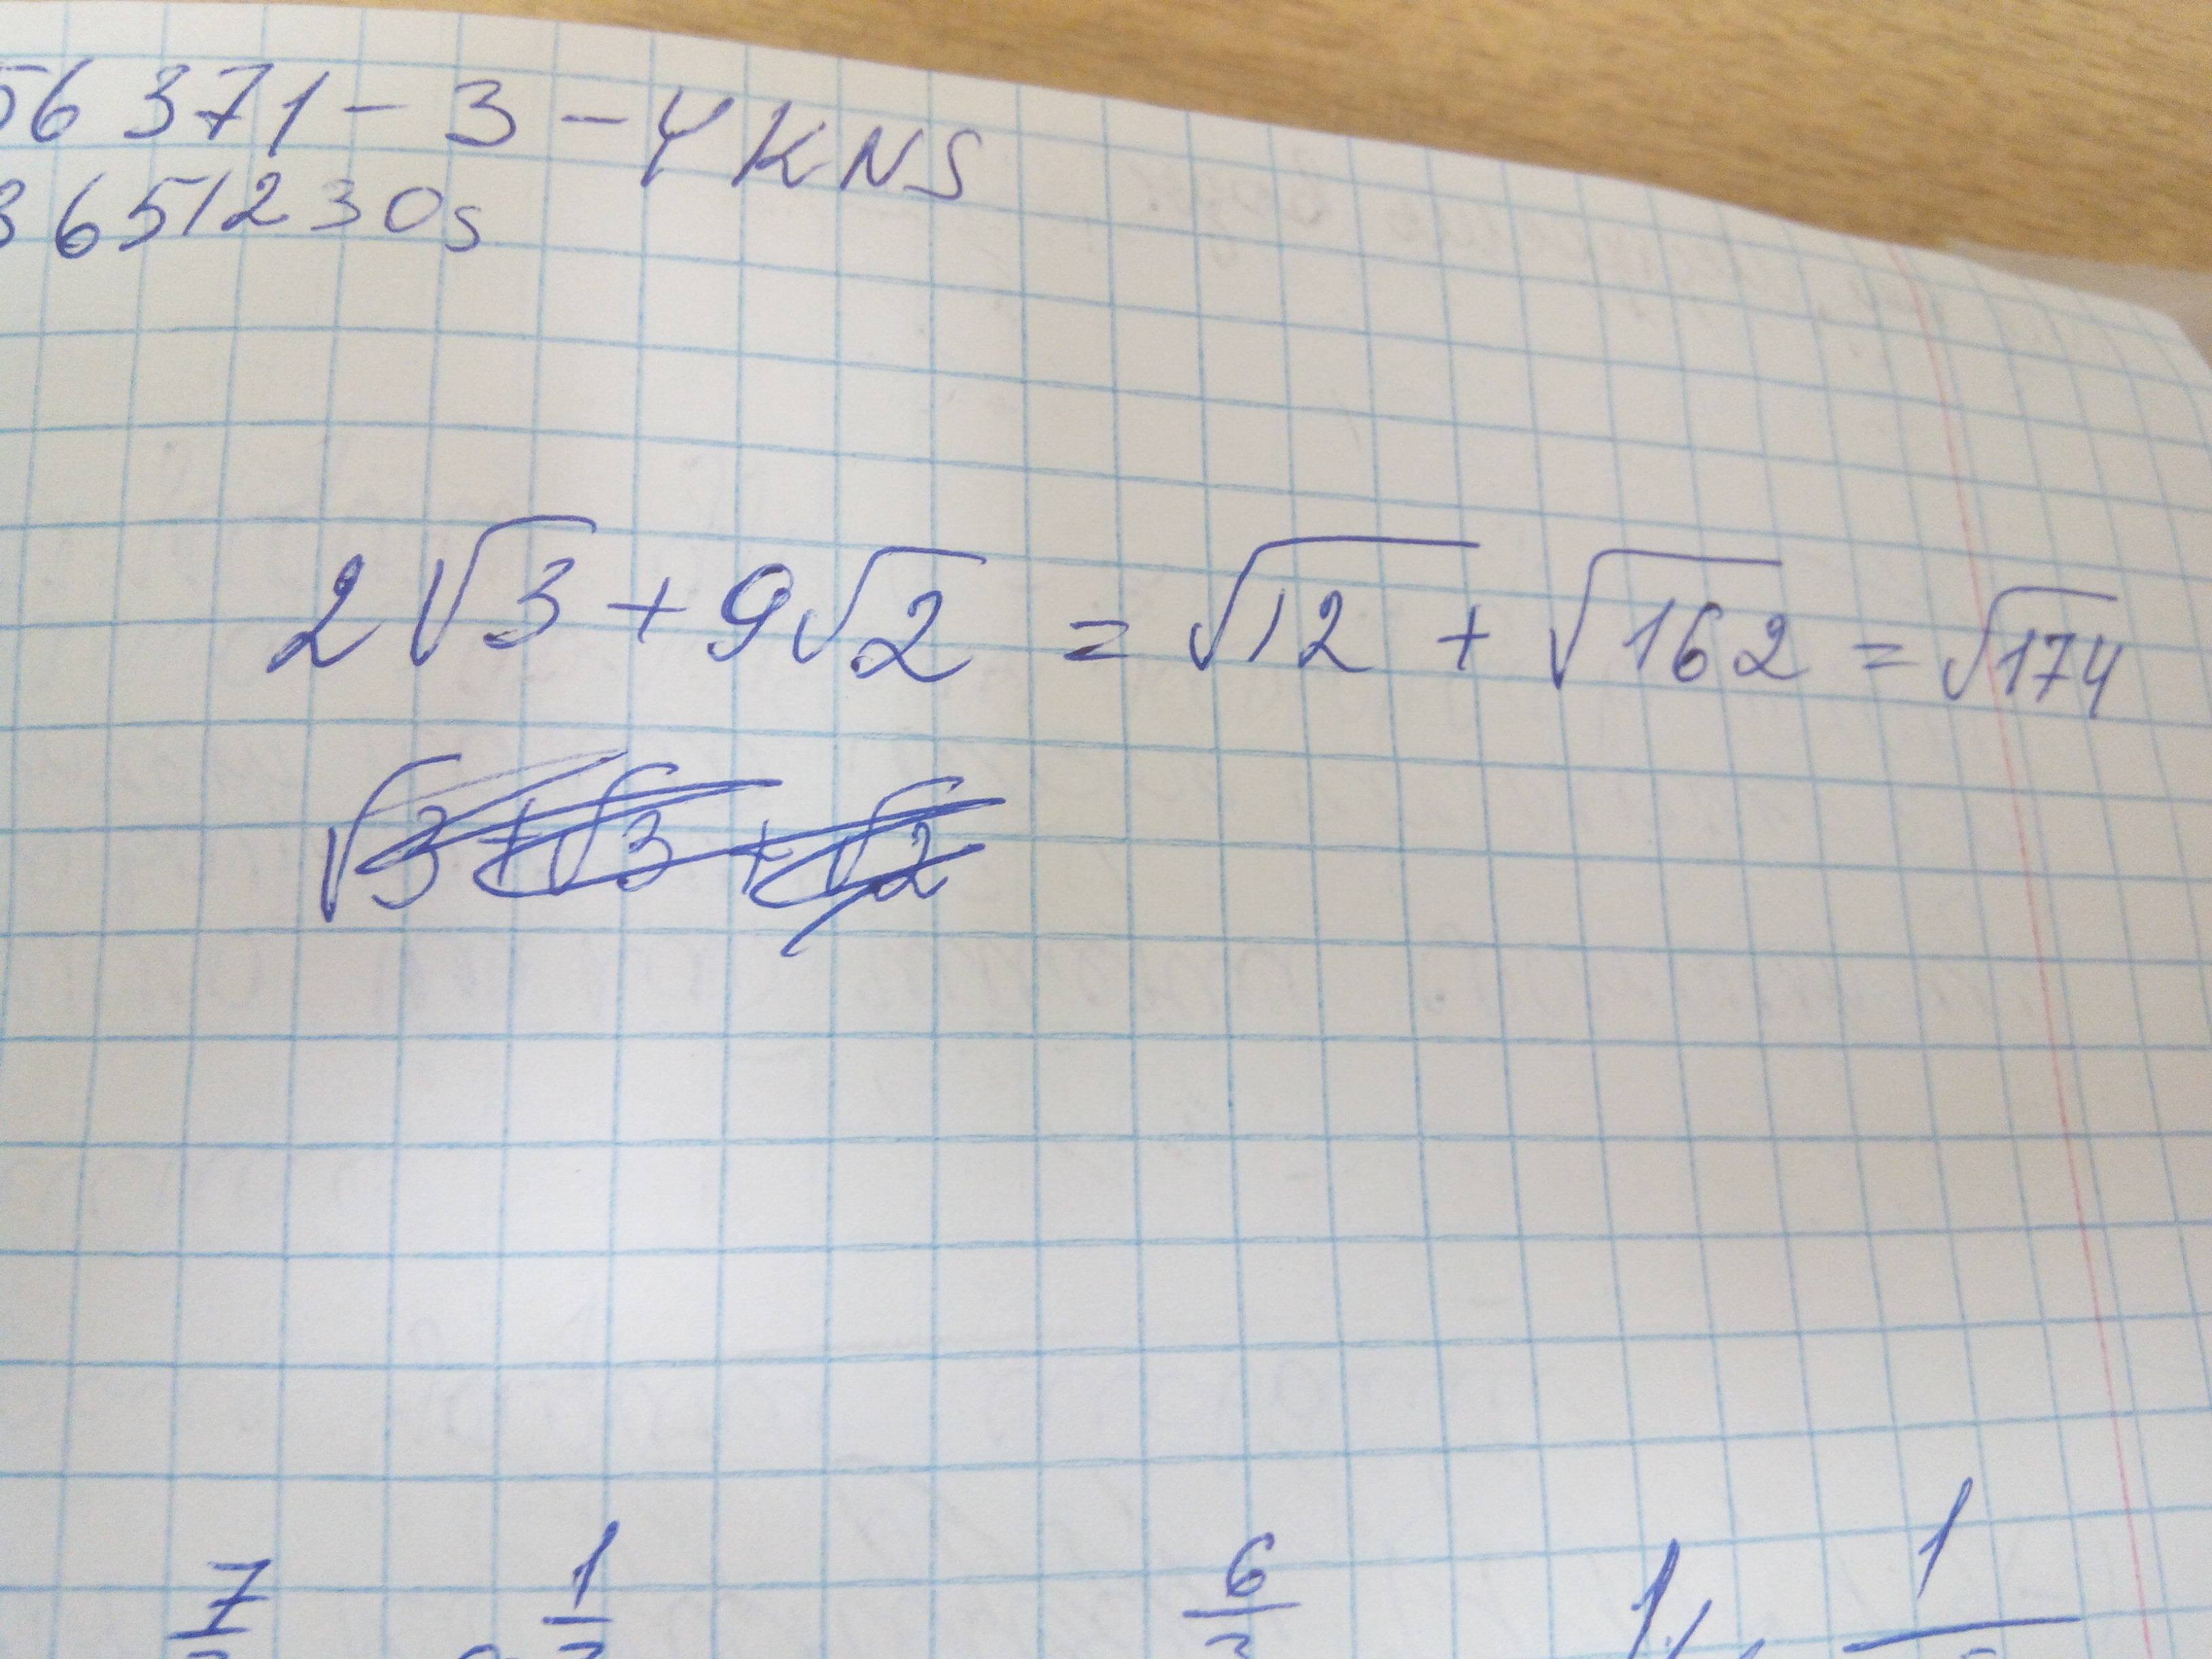 56 371 - 3 - 4 KNS
3651230s
2√3 + 9√2 = √12 + √162 = √174
√3 + √3 + √2
7 1 6 1